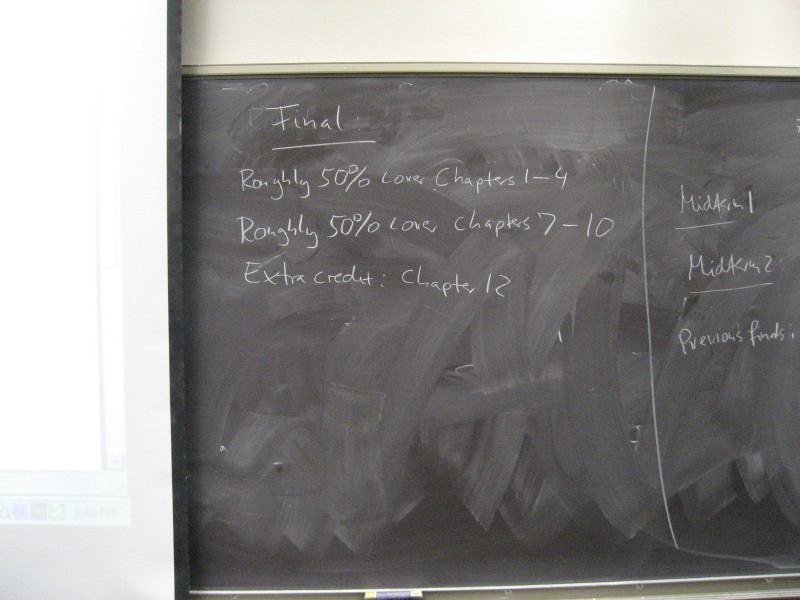 Final
Roughly 50% cover Chapters 1-4
Roughly 50% cover Chapters 7-10
Extra credit: Chapter 12
Midterm 1
Midterm 2
Previous finals: